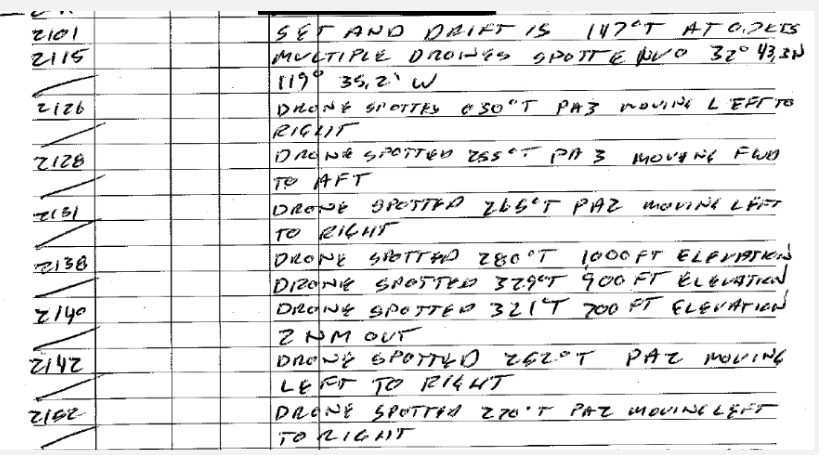 2101 SET AND DRIFT IS 147°T AT 0.7KTS
2115 MULTIPLE DRONES SPOTTE 32° 43,3N
119° 35,2' W
2126 DRONE SPOTTED 030°T PA3 MOVING LEFT TO
RIGHT
2128 DRONE SPOTTED 255°T PA 3 MOVING FWD
TO AFT
2131 DRONE SPOTTED 265°T PA2 MOVING LEFT
TO RIGHT
2138 DRONE SPOTTED 280°T 1000 FT ELEVATION
DRONE SPOTTED 329°T 900 FT ELEVATION
2140 DRONE SPOTTED 321°T 700 FT ELEVATION
2 NM OUT
2142 DRONE SPOTTED 262°T PA2 MOVING
LEFT TO RIGHT
DRONE SPOTTED 270°T PA2 MOVING LEFT
TO RIGHT